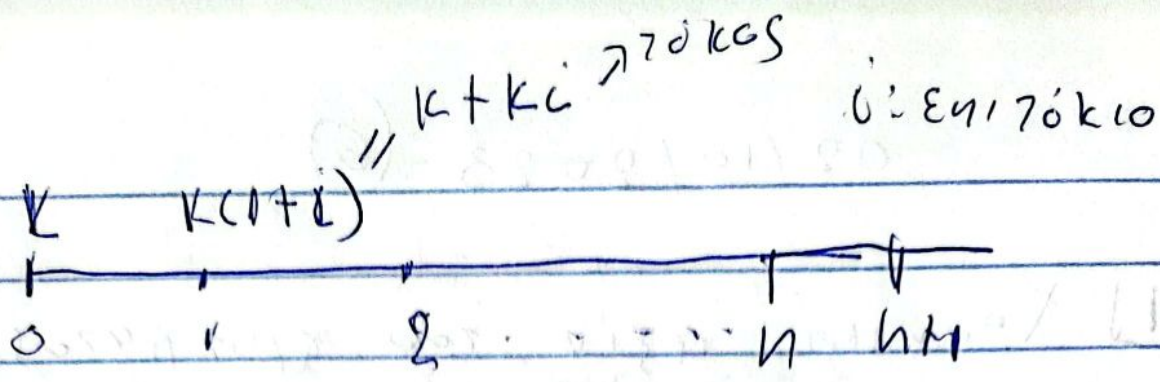 K + Ki → τόκος
i: επιτόκιο
K K(1+i) =
0 1 2 ... n n+1